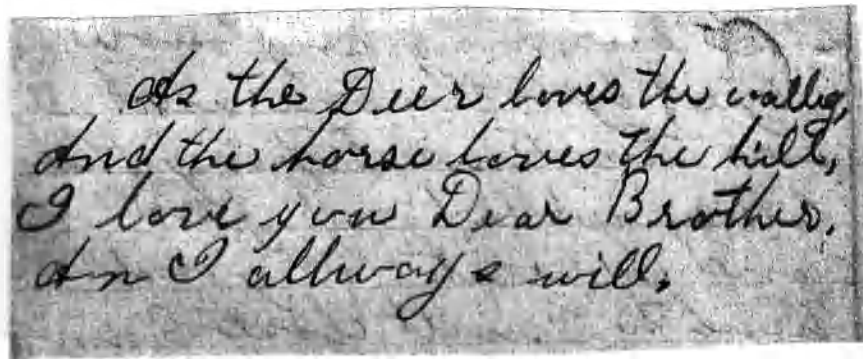 As the Deer loves the vallig,
And the horse loves the hill,
I love you Dear Brother.
An I allways will.